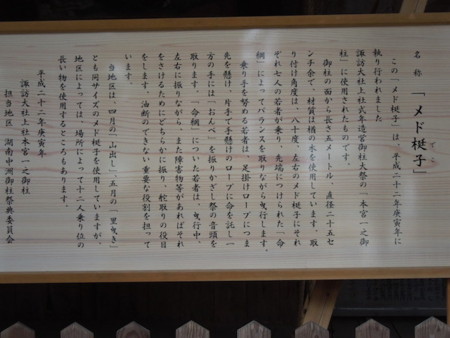 名称 「メド梃子」
てこ
この「メド梃子」は、平成二十二年庚寅年に
執り行われました
諏訪大社上社式年造営御柱大祭の「本宮一之御
柱」に使用されたものです。
御柱の面から長さ八メートル、直径二十五セ
ンチ余で、材質は楢の木を使用しています。取
り付け角度は、八十度、左右のメド梃子にそれ
ぞれ七人の若者が乗り、先端につけられた「命
綱」によってバランスを取りながら曳行します。
乗り手を努める若者は、足掛けロープにつま
先を懸け、片手で手懸けのロープに命を託し一
方の手には「おんべ」を振りかざし祭の音頭を
取ります。「命綱」についた若者は、曳行中、
左右に振りながら、また障害物等があればそれ
をさけるためにどちらかに振り、舵取りの役目
をします。油断のできない重要な役割を担って
います。
当地区は、四月の「山出し」、五月の「里曳き」
とも同サイズのメド梃子を使用していますが、
地区によっては、場所によって十二人乗り位の
長い物を使用するところもあります。
平成二十二年庚寅年
諏訪大社上社本宮一之御柱
担当地区 湖南中洲御柱祭典委員会